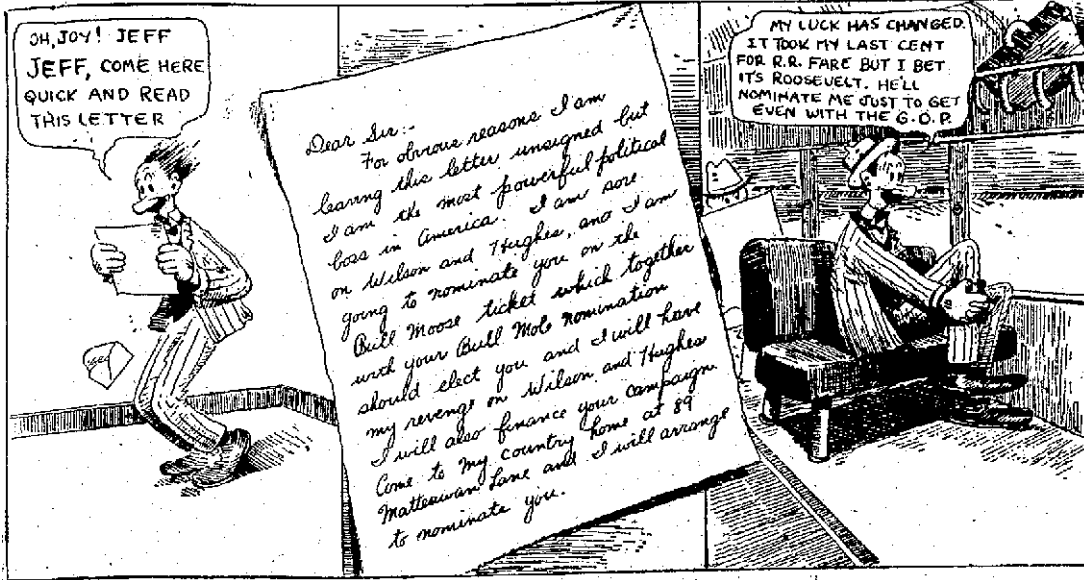 OH, JOY! JEFF
JEFF, COME HERE
QUICK AND READ
THIS LETTER
Dear Sir:-
For obvious reasons I am
leaving this letter unsigned but
I am the most powerful political
boss in America. I am sore
on Wilson and Hughes, and I am
going to nominate you on the
Bull Moose ticket which together
with your Bull Mole nomination
should elect you and I will have
my revenge on Wilson and Hughes
I will also finance your campaign
Come to my country home at 89
Matteawan Lane and I will arrange
to nominate you.
MY LUCK HAS CHANGED.
IT TOOK MY LAST CENT
FOR R.R. FARE BUT I BET
IT'S ROOSEVELT. HE'LL
NOMINATE ME JUST TO GET
EVEN WITH THE G.O.P.